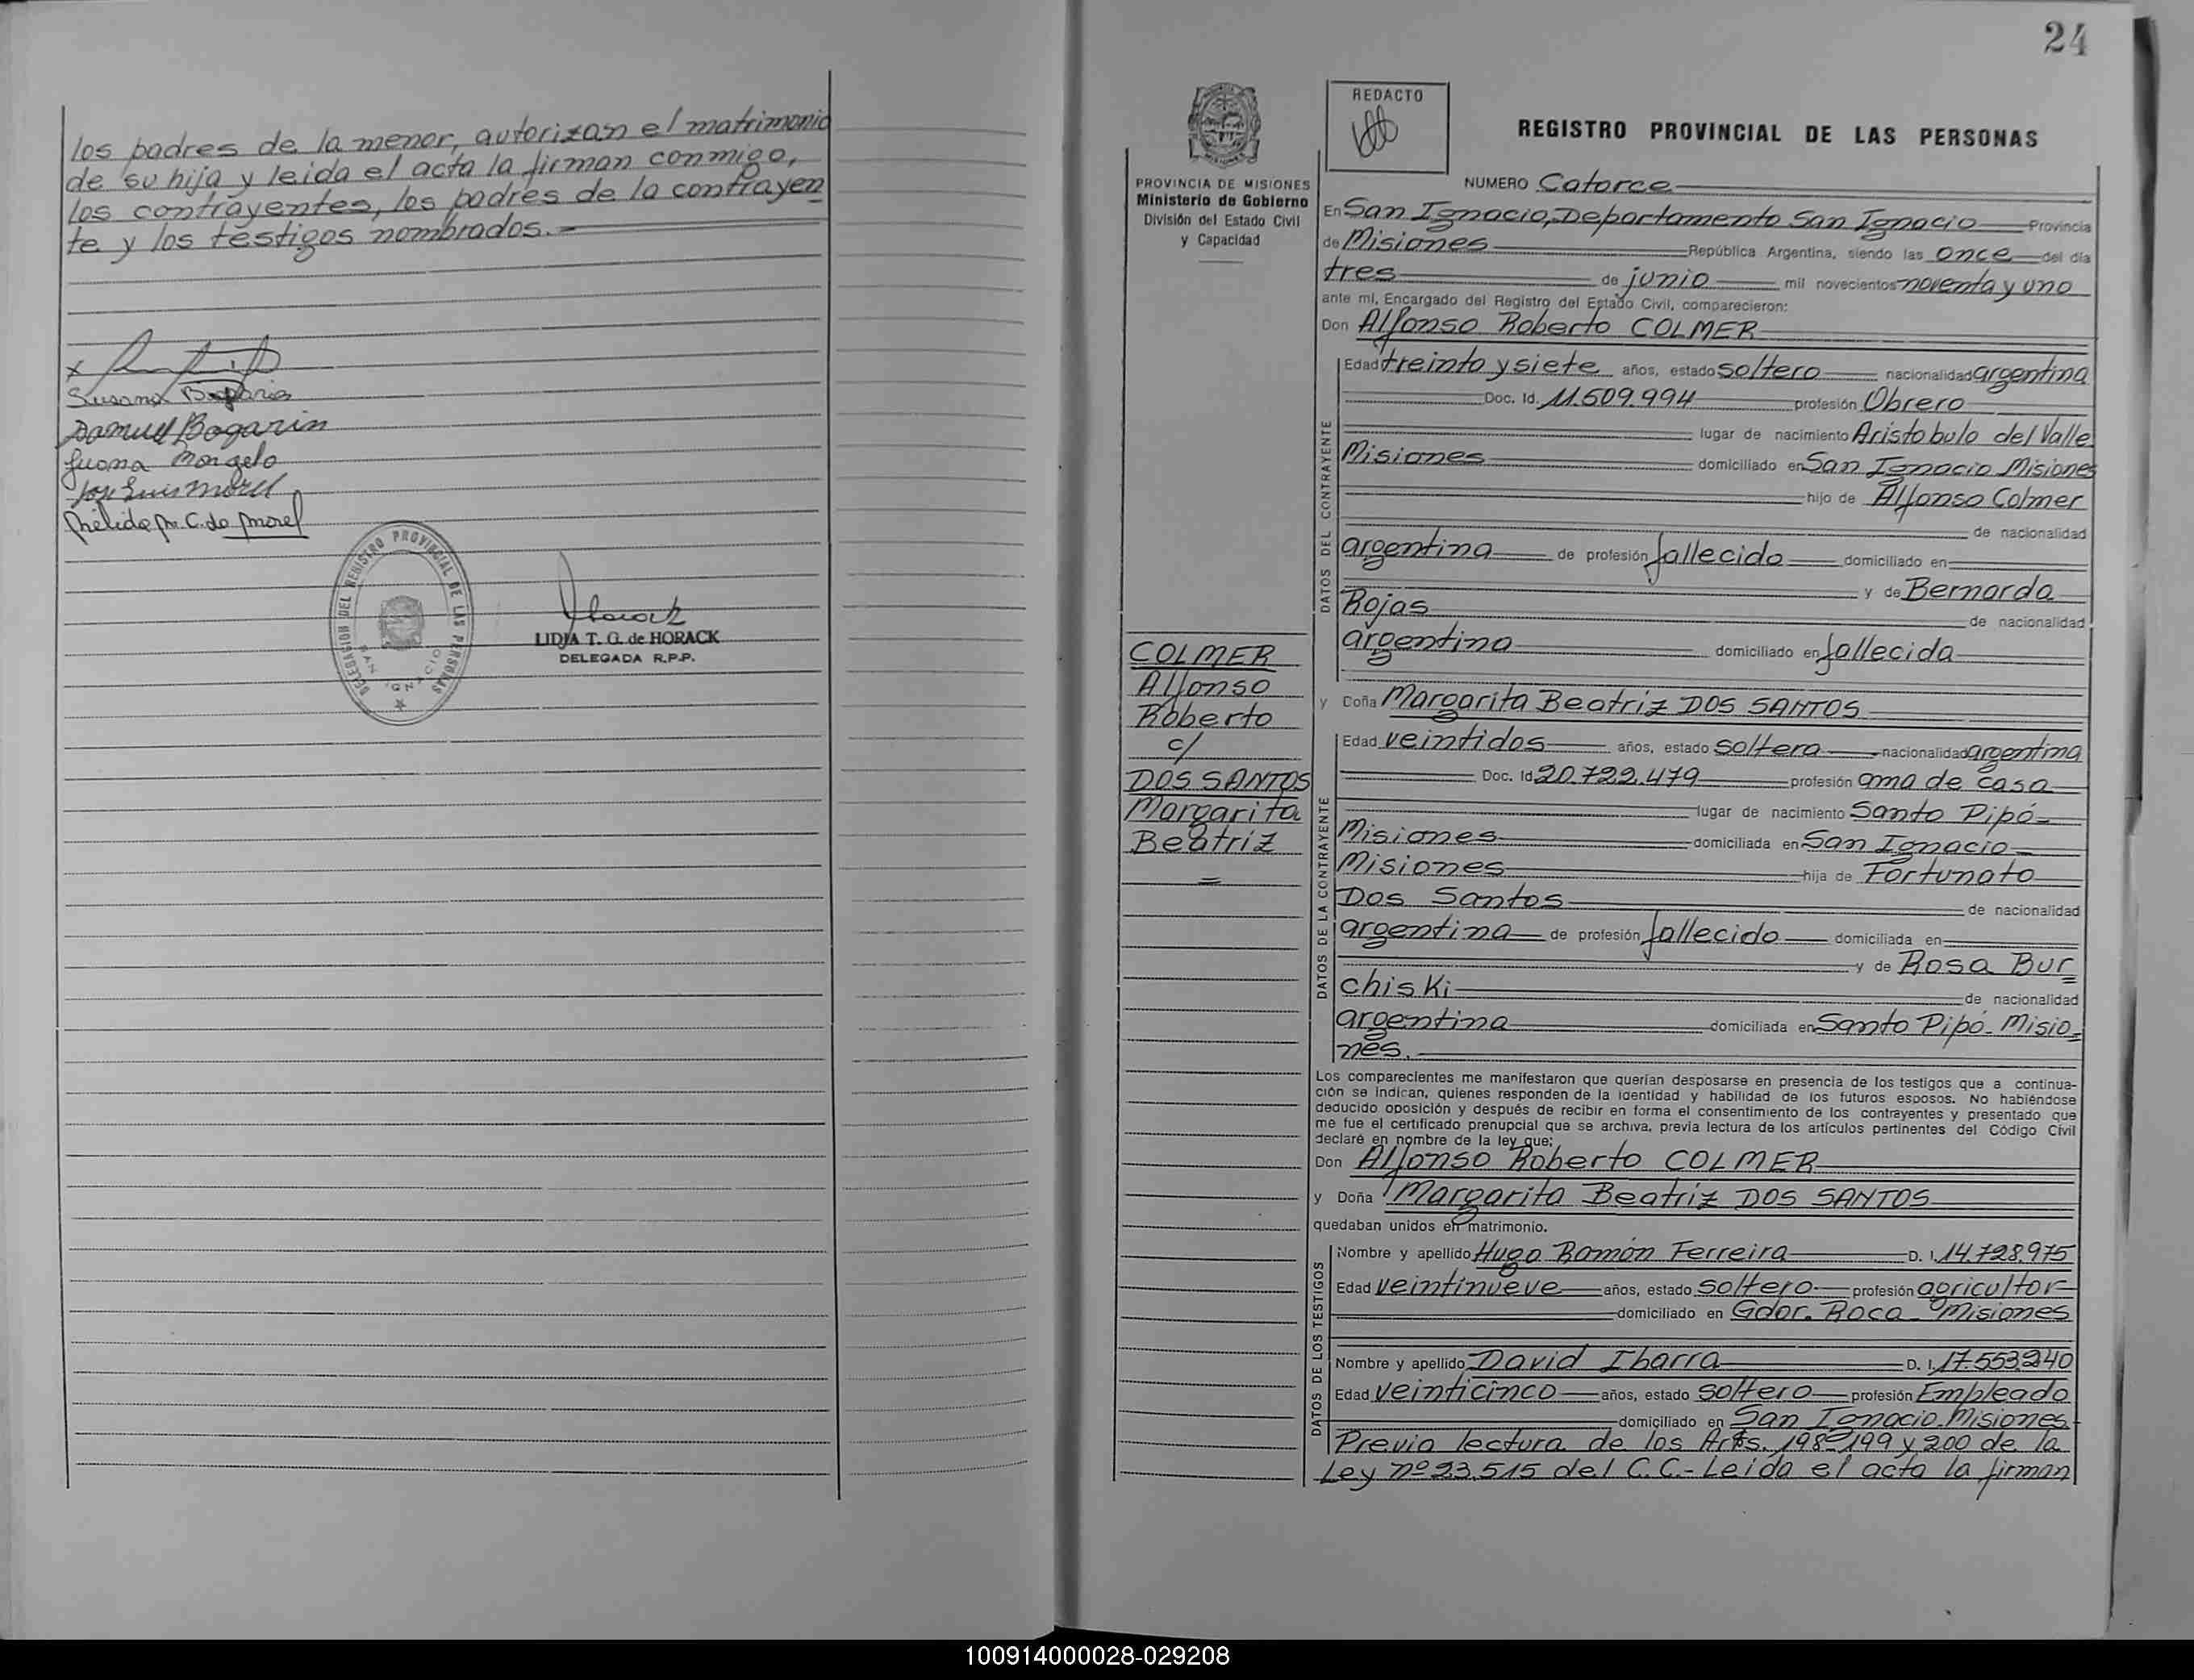 los padres de la menor, autorizan el matrimonio
de su hija y leida el acta la firman conmigo,
los contrayentes, los padres de la contrayen
te y los testigos nombrados.-
x
Susana
Samuel Bogarin
Juana Mongelo
José Luis Morel
Mélida M. C. de Morel
DELEGACION DEL REGISTRO PROVINCIAL DE LAS PERSONAS
SAN IGNACIO
LIDIA T. G. de HORACK
DELEGADA R.P.P.
24
PROVINCIA DE MISIONES
Ministerio de Gobierno
División del Estado Civil
y Capacidad
COLMER
Alfonso
Roberto
c/
DOS SANTOS
Margarita
Beatriz
=
REDACTO
REGISTRO PROVINCIAL DE LAS PERSONAS
NUMERO Catorce
En San Ignacio, Departamento San Ignacio Provincia
de Misiones República Argentina, siendo las once del día
tres de junio mil novecientos noventa y uno
ante mí, Encargado del Registro del Estado Civil, comparecieron:
Don Alfonso Roberto COLMER
DATOS DEL CONTRAYENTE
Edad treinta y siete años, estado soltero nacionalidad argentina
Doc. Id. 11.509.994 profesión Obrero
lugar de nacimiento Aristobulo del Valle
Misiones domiciliado en San Ignacio Misiones
hijo de Alfonso Colmer
de nacionalidad
argentina de profesión fallecido domiciliado en
y de Bernarda
Rojas de nacionalidad
argentina domiciliado en fallecida
y Doña Margarita Beatriz DOS SANTOS
DATOS DE LA CONTRAYENTE
Edad veintidos años, estado soltera nacionalidad argentina
Doc. Id 20.722.479 profesión ama de casa
lugar de nacimiento Santo Pipó-
Misiones domiciliada en San Ignacio-
Misiones hija de Fortunato
Dos Santos de nacionalidad
argentina de profesión fallecido domiciliada en
y de Rosa Bur=
chiski de nacionalidad
argentina domiciliada en Santo Pipó- Misio=
nes.
Los comparecientes me manifestaron que querían desposarse en presencia de los testigos que a continua-
ción se indican, quienes responden de la identidad y habilidad de los futuros esposos. No habiéndose
deducido oposición y después de recibir en forma el consentimiento de los contrayentes y presentado que
me fue el certificado prenupcial que se archiva, previa lectura de los artículos pertinentes del Código Civil
declaré en nombre de la ley que;
Don Alfonso Roberto COLMER
y Doña Margarita Beatriz DOS SANTOS
quedaban unidos en matrimonio.
DATOS DE LOS TESTIGOS
Nombre y apellido Hugo Ramón Ferreira D. I. 14.728.975
Edad veintinueve años, estado soltero- profesión agricultor
domiciliado en Gdor. Roca- Misiones
Nombre y apellido David Ibarra D. I. 17.553.240
Edad veinticinco años, estado soltero profesión Empleado
domiciliado en San Ignacio-Misiones-
Previa lectura de los Arts. 198-199 y 200 de la
Ley nº 23.515 del C.C.- Leida el acta la firman
100914000028-029208